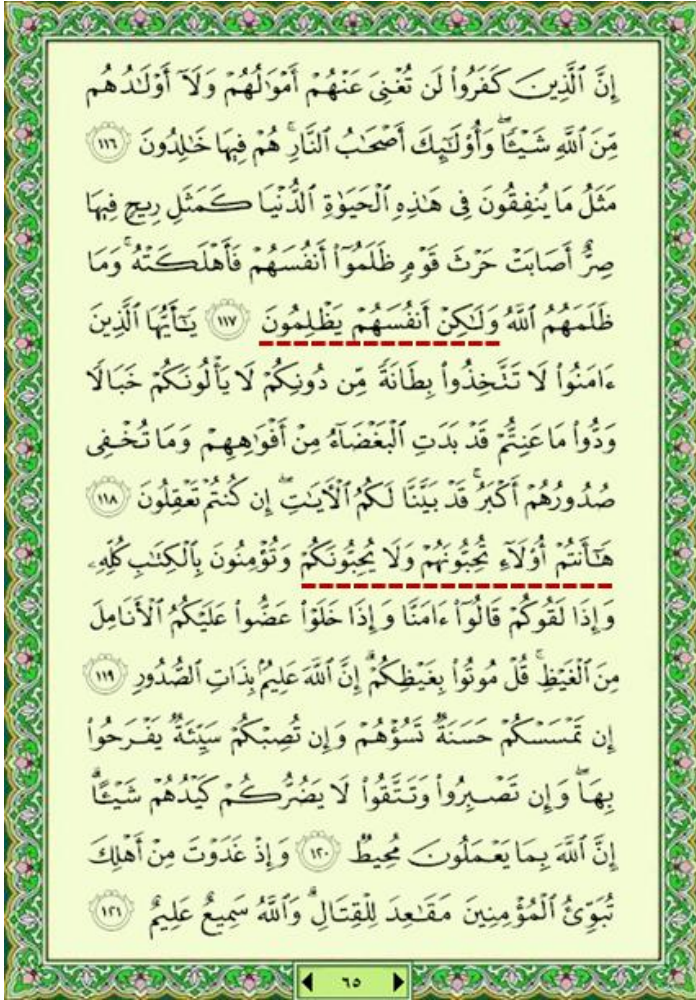 إِنَّ ٱلَّذِينَ كَفَرُواْ لَن تُغْنِىَ عَنْهُمْ أَمْوَٰلُهُمْ وَلَآ أَوْلَـٰدُهُم
مِّنَ ٱللَّهِ شَيْـًٔا ۖ وَأُوْلَـٰٓئِكَ أَصْحَـٰبُ ٱلنَّارِ ۚ هُمْ فِيهَا خَـٰلِدُونَ ١١٦
مَثَلُ مَا يُنفِقُونَ فِى هَـٰذِهِ ٱلْحَيَوٰةِ ٱلدُّنْيَا كَمَثَلِ رِيحٍ فِيهَا
صِرٌّ أَصَابَتْ حَرْثَ قَوْمٍ ظَلَمُوٓاْ أَنفُسَهُمْ فَأَهْلَكَتْهُ ۚ وَمَا
ظَلَمَهُمُ ٱللَّهُ وَلَـٰكِنْ أَنفُسَهُمْ يَظْلِمُونَ ١١٧ يَـٰٓأَيُّهَا ٱلَّذِينَ
ءَامَنُواْ لَا تَتَّخِذُواْ بِطَانَةً مِّن دُونِكُمْ لَا يَأْلُونَكُمْ خَبَالًا
وَدُّواْ مَا عَنِتُّمْ قَدْ بَدَتِ ٱلْبَغْضَآءُ مِنْ أَفْوَٰهِهِمْ وَمَا تُخْفِى
صُدُورُهُمْ أَكْبَرُ ۚ قَدْ بَيَّنَّا لَكُمُ ٱلْـَٔايَـٰتِ ۖ إِن كُنتُمْ تَعْقِلُونَ ١١٨
هَـٰٓأَنتُمْ أُوْلَآءِ تُحِبُّونَهُمْ وَلَا يُحِبُّونَكُمْ وَتُؤْمِنُونَ بِٱلْكِتَـٰبِ كُلِّهِۦ
وَإِذَا لَقُوكُمْ قَالُوٓاْ ءَامَنَّا وَإِذَا خَلَوْاْ عَضُّواْ عَلَيْكُمُ ٱلْأَنَامِلَ
مِنَ ٱلْغَيْظِ ۚ قُلْ مُوتُواْ بِغَيْظِكُمْ ۗ إِنَّ ٱللَّهَ عَلِيمٌۢ بِذَاتِ ٱلصُّدُورِ ١١٩
إِن تَمْسَسْكُمْ حَسَنَةٌ تَسُؤْهُمْ وَإِن تُصِبْكُمْ سَيِّئَةٌ يَفْرَحُواْ
بِهَا ۖ وَإِن تَصْبِرُواْ وَتَتَّقُواْ لَا يَضُرُّكُمْ كَيْدُهُمْ شَيْـًٔا ۗ
إِنَّ ٱللَّهَ بِمَا يَعْمَلُونَ مُحِيطٌ ١٢٠ وَإِذْ غَدَوْتَ مِنْ أَهْلِكَ
تُبَوِّئُ ٱلْمُؤْمِنِينَ مَقَـٰعِدَ لِلْقِتَالِ ۗ وَٱللَّهُ سَمِيعٌ عَلِيمٌ ١٢١
٦٥